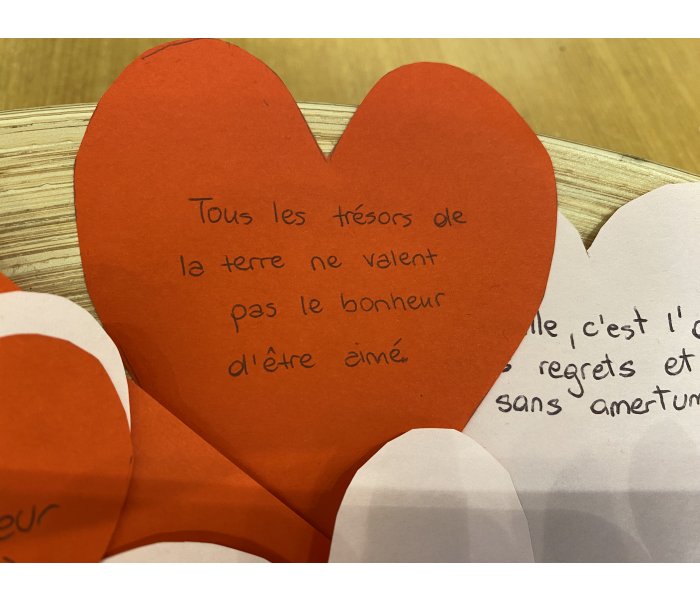 Tous les trésors de
la terre ne valent
pas le bonheur
d'être aimé.
, c'est l'
regrets et
sans